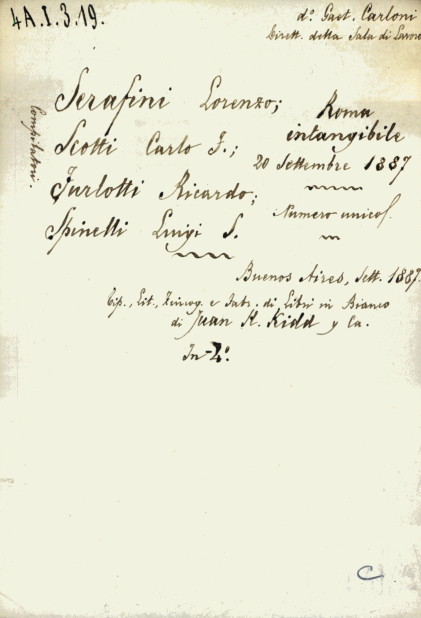 4A.I.3.19.
d.º Gaet. Carloni
Dirett. della Sala di Lavoro
Compilatori.
Serafini Lorenzo;
Scotti Carlo F.;
Furlotti Ricardo;
Spinelli Luigi S.
Roma
intangibile
20 Settembre 1887
Numero unico.
Buenos Aires, Sett. 1887.
Tip., Lit., Zincog. e Fabr. di Libri in Bianco
di Juan H. Kidd y Ca.
In-4.º
C